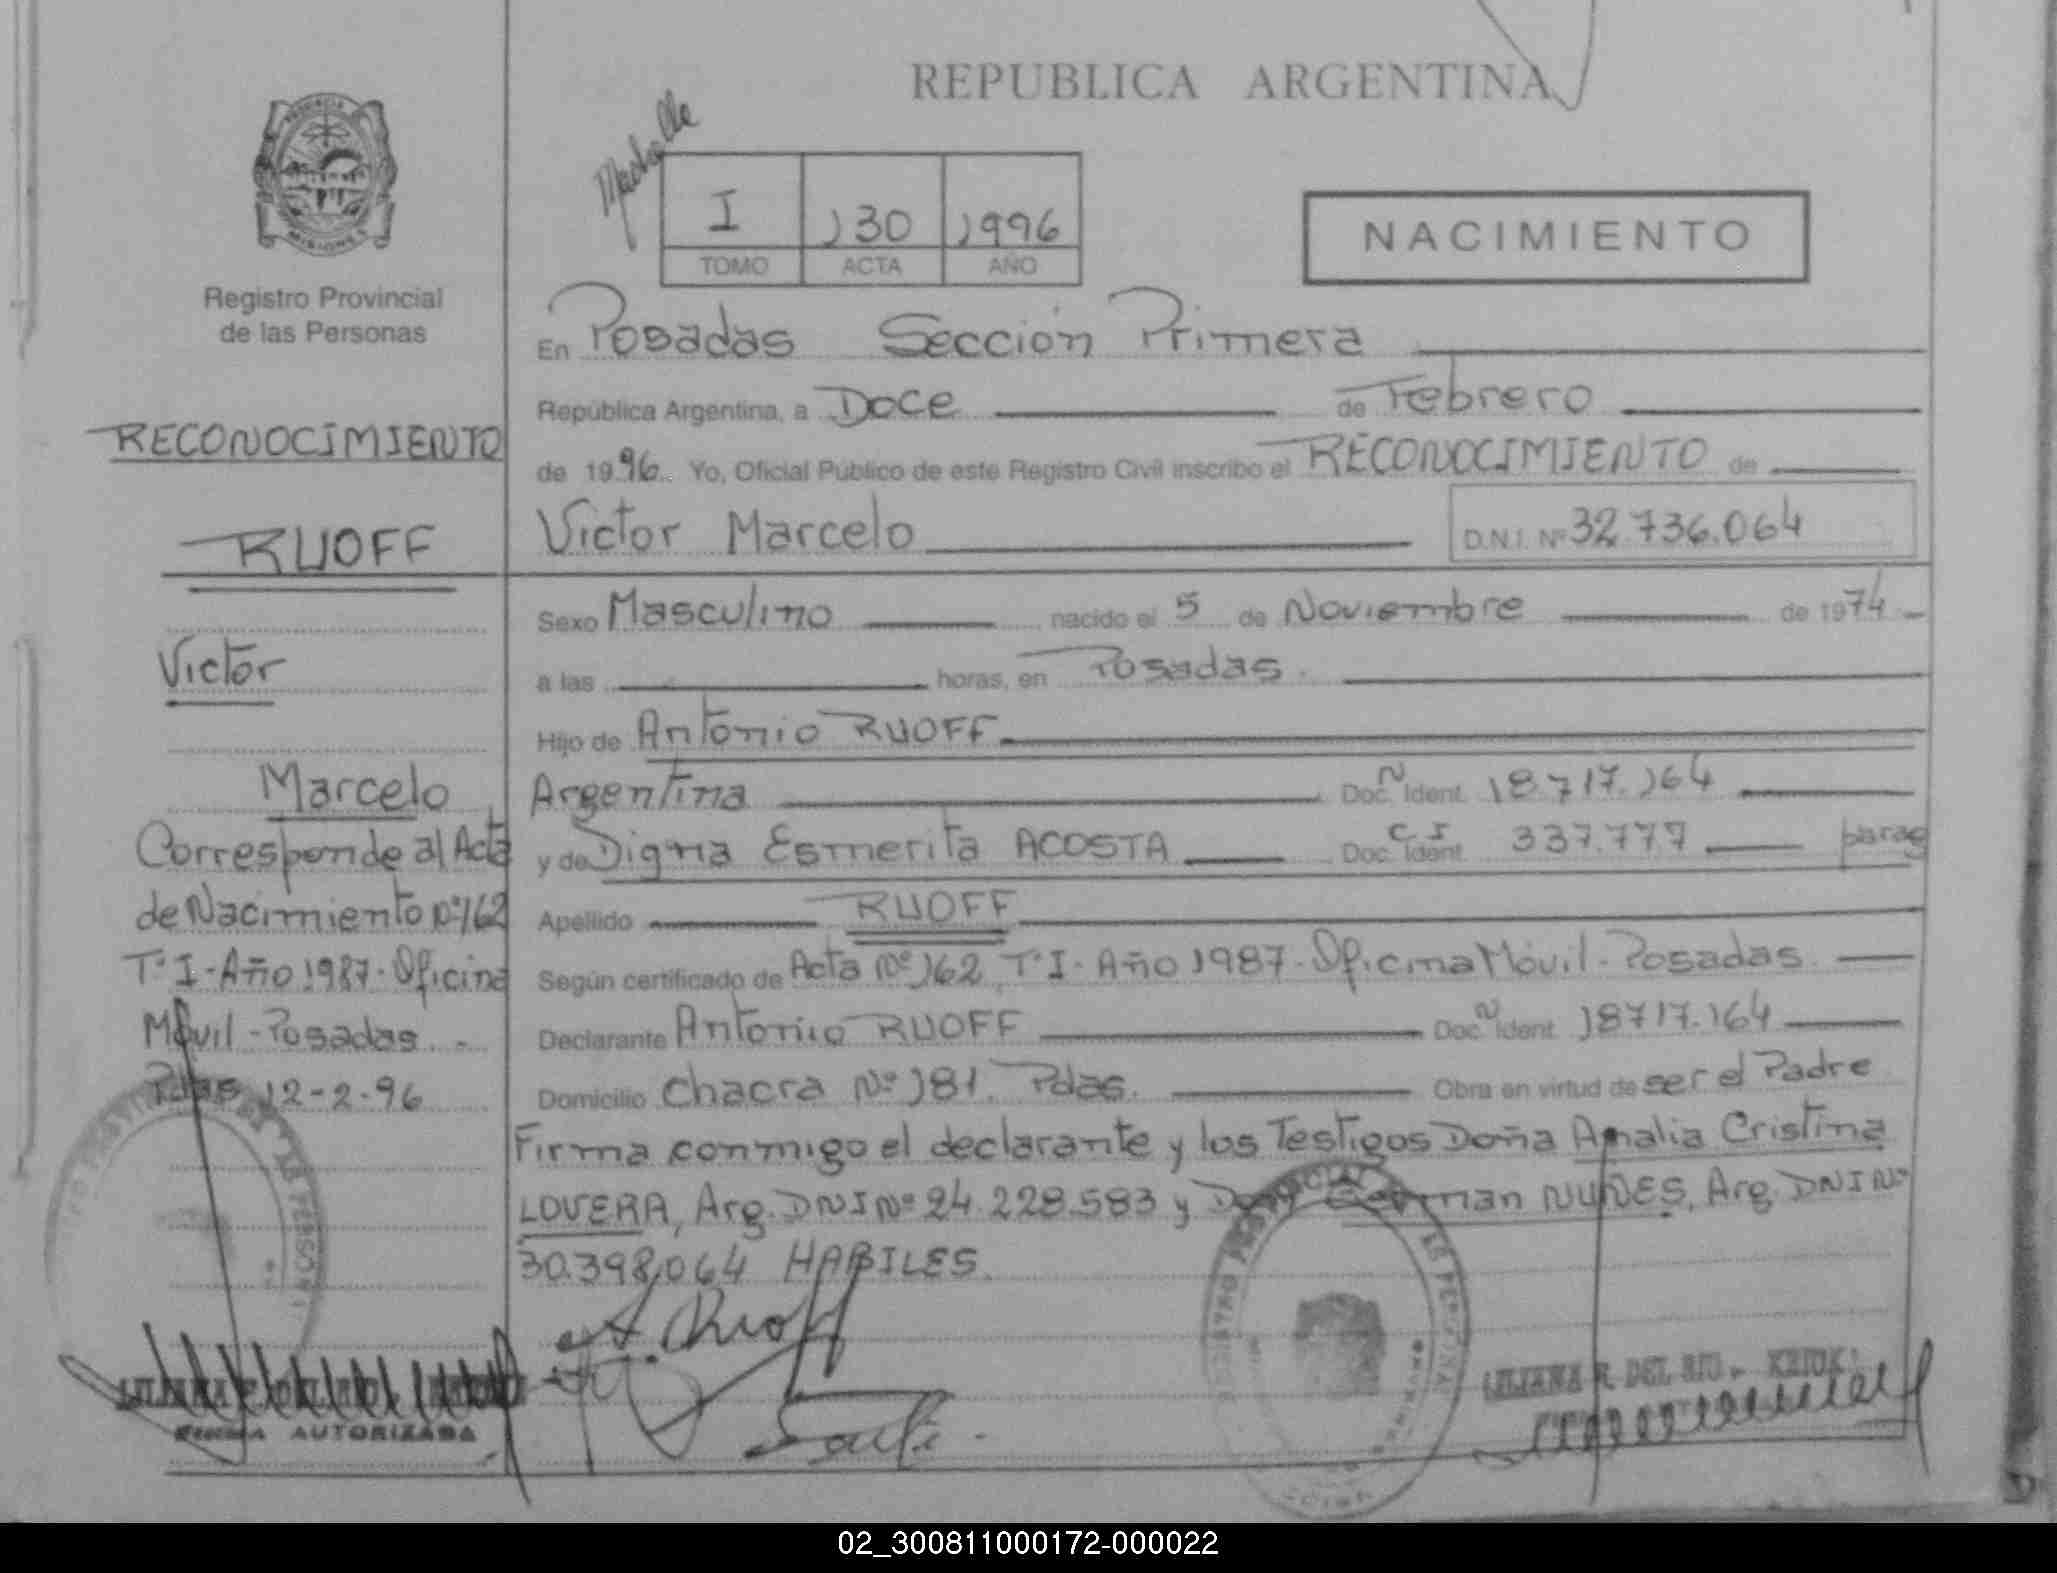 REPUBLICA ARGENTINA
PROVINCIA
MISIONES
Registro Provincial
de las Personas
I 130 1996
TOMO ACTA AÑO
NACIMIENTO
RECONOCIMIENTO
RUOFF
Victor
Marcelo
Corresponde al Acta
de Nacimiento Nº 162
Tº I - Año 1987 - Oficina
Móvil - Posadas. -
Pdas 12-2-96
En Posadas Sección Primera
República Argentina, a Doce de Febrero
de 1996. Yo, Oficial Público de este Registro Civil inscribo el RECONOCIMIENTO de
Victor Marcelo D.N.I. Nº 32.736.064
Sexo Masculino nacido el 5 de Noviembre de 1974
a las horas, en Posadas.
Hijo de Antonio RUOFF
Argentina Doc. N Ident. 18.717.164
y de Digna Esmerita ACOSTA Doc. C I Ident. 337.777 parag
Apellido RUOFF
Según certificado de Acta Nº 162, Tº I - Año 1987 - Oficina Móvil - Posadas.
Declarante Antonio RUOFF Doc. N Ident. 18717.164
Domicilio Chacra Nº 181. Pdas. Obra en virtud de ser el Padre
Firma conmigo el declarante y los Testigos Doña Amalia Cristina
LOVERA, Arg. DNI Nº 24.228.583 y Don German NUÑES, Arg. DNI Nº
30.398.064 HABILES.
A. Ruoff
LILIANA R. DEL RIO
FIRMA AUTORIZADA
02_300811000172-000022